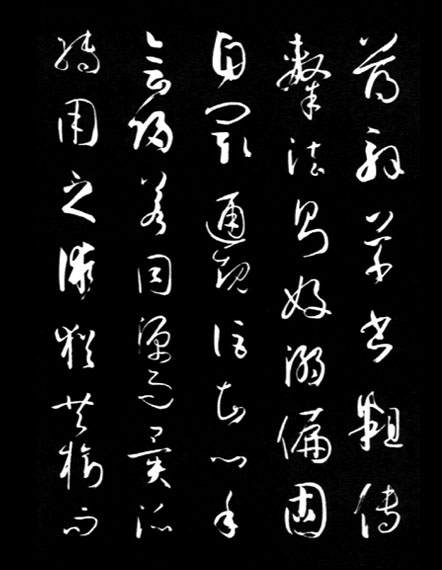 薄解草書麤傳
隸法則好溺偏固
自閡通規詎知心手
會歸若同源而異派
轉用之術猶共樹而